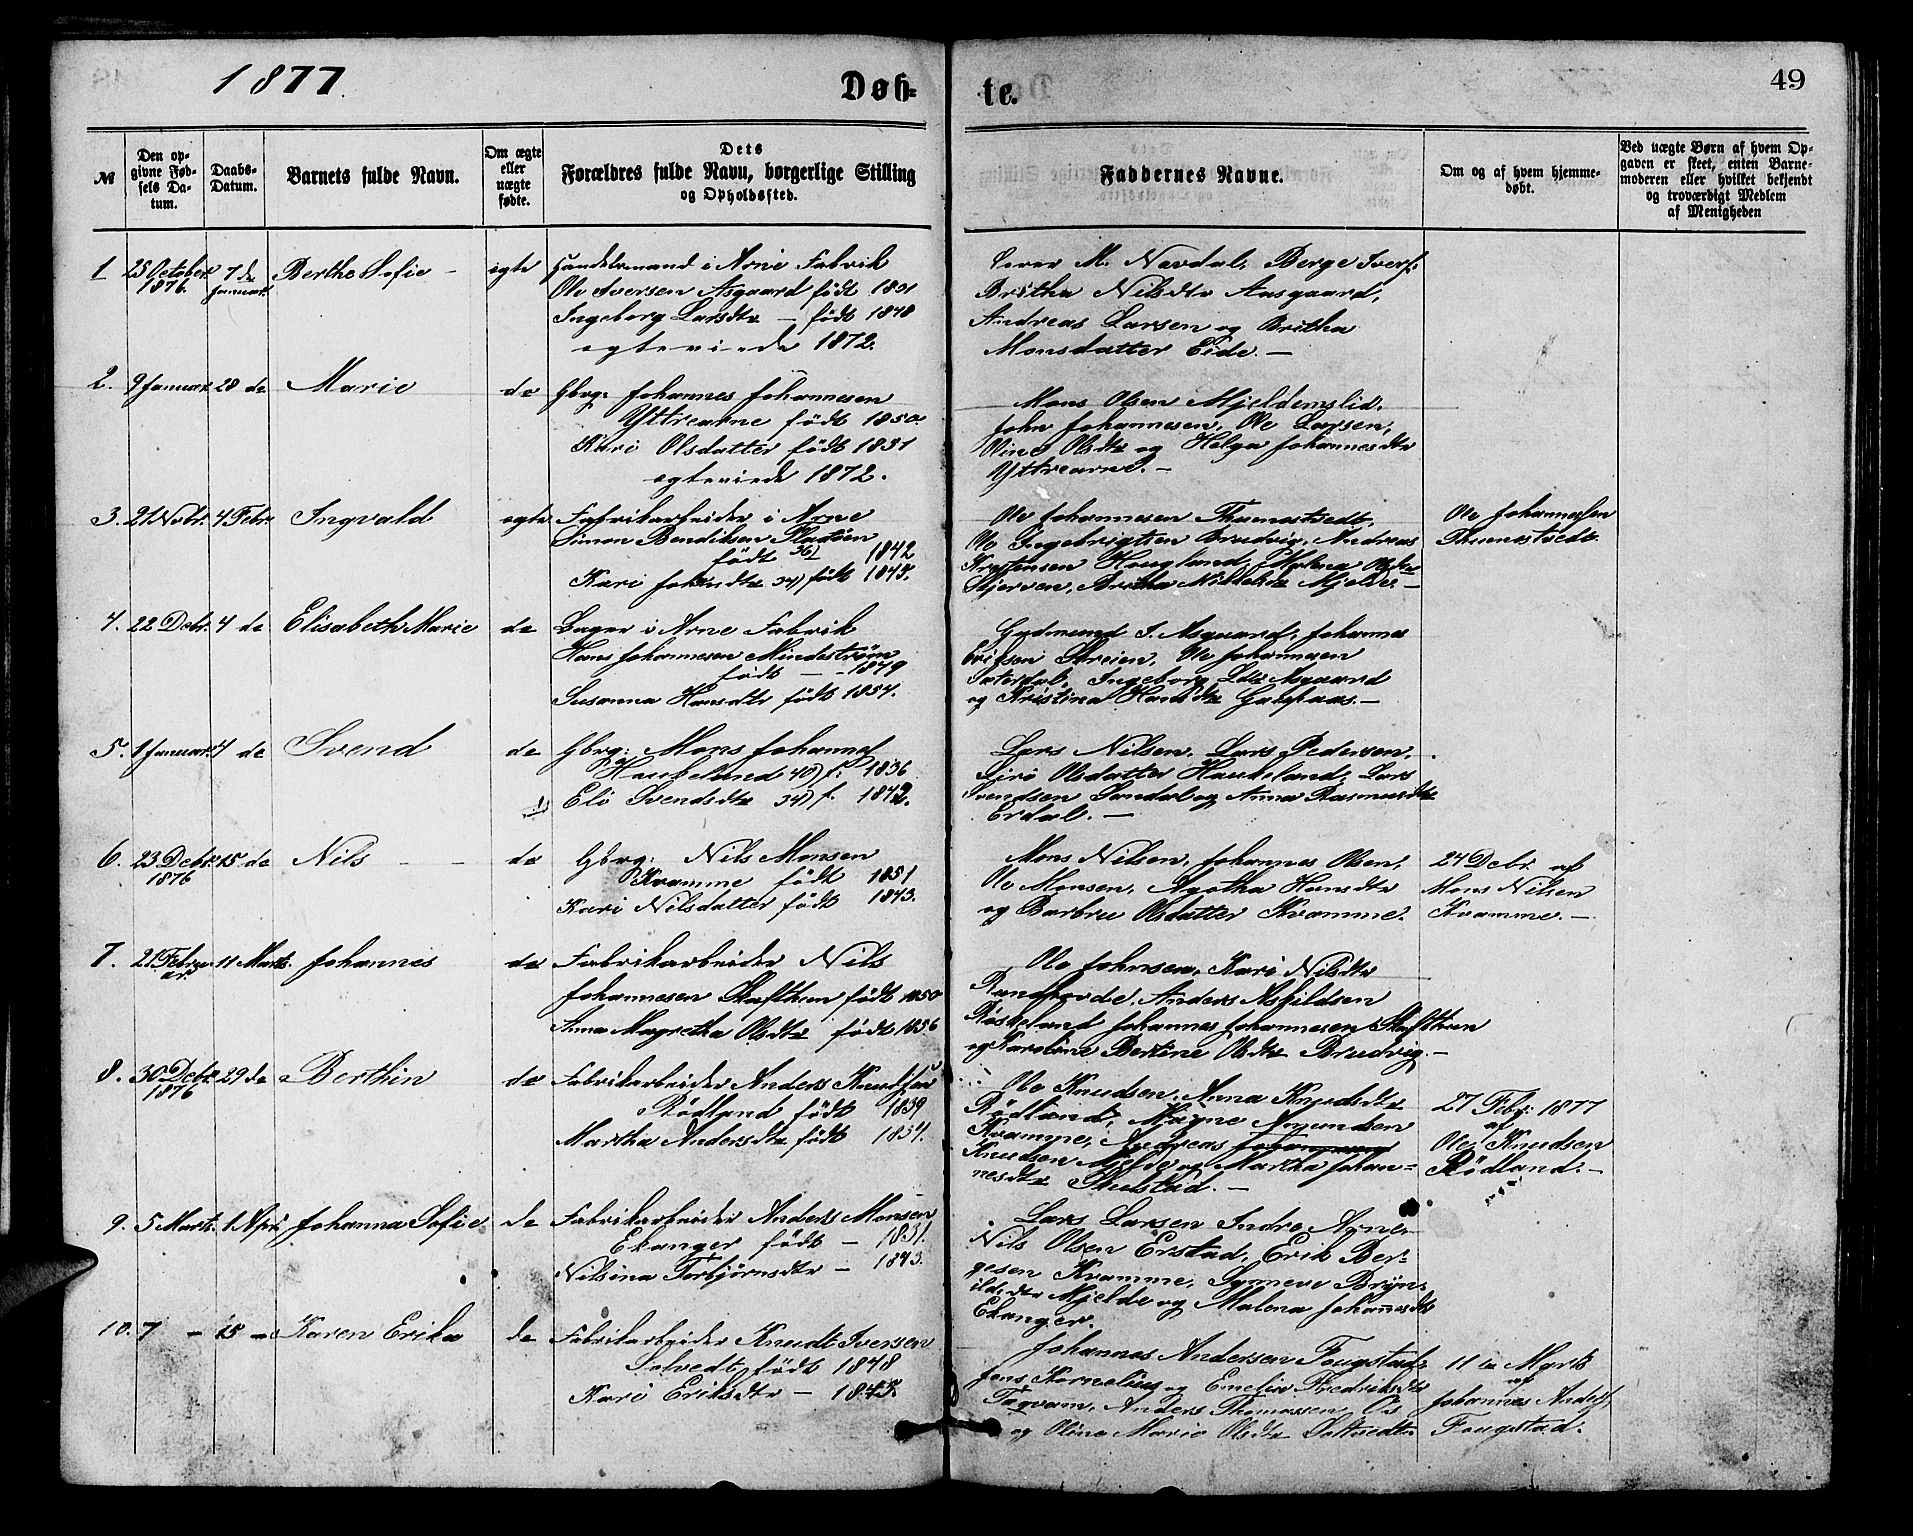 1877.
Døb-
te.
49
№
Den op-
givne Fød-
sels Da-
tum.
Daabs-
Datum.
Barnets fulde Navn.
Om ægte
eller
uægte
fødte.
Dets
Forældres fulde Navn, borgerlige Stilling
og Opholdssted.
Faddernes Navne.
Om og af hvem hjemme-
døbt.
Ved uægte Børn af hvem Op-
gaven er skeet, enten Barne-
moderen eller hvilket bekjendt
og troværdigt Medlem
af Menigheden
1 25 October 7 de Berthe Sofie - egte
1876. Januar.
Handelsmand i Arne Fabrik
Ole Iversen Asgaard født 1821
Ingeborg Larsdtr - født 1848
egteviede 1872.
M. Nævdal, Berge Ivers.
Britha Nilsdtr Aasgaard,
Andreas Larsen og Britha
Monsdatter Eide. -
2. 9 Januar. 28 de Marie do
Gbrg: Johannes Johannesen
Yttrearne født 1850.
Kari Olsdatter født 1851
egteviede 1872.
Mons Olsen Mjeldemslid.
John Johannesen, Ole Larsen,
Olsdtr og Helga Johannesdtr
Yttrearne. -
3. 21 Novbr. 4 Febr Ingvald egte
Fabrikarbeider i Arne
Simon Bendiksen
født 36) 1842
Kari Johansdtr 34) født 1845.
Ole Johannesen Tunestvedt,
Ole Ingebrigtsen Brudvig, Andreas
Hougland,
Skjerven, Britha Mjelde. -
Ole Johannesen
Tunestvedt.
4. 22 Debr. 4 de Elisabeth Marie do
Bager i Arne Fabrik
Hans Johannesen Mindestrøm
født - - 1849
Susanna Hansdtr født 1854.
Gudmund I. Asgaard, Johannes
Eriksen Johannesen
Sæterdal, Ingeborg Asgaard
og Kristina Hansdtr
5. 1 Januar. 4 de Svend do
Gbrg: Mons Johannes
Haukeland 40) f: 1836
Eli Svendsdtr 34) f. 1842.
Lars Nilsen, Lars Pedersen,
Siri Olsdatter Haukeland, Lars
Svendsen Sandal og Anna Rasmusdtr
Erdal. -
6. 23 Debr. 15 de Nils - - do
1876
Gbrg: Nils Monsen
Kvamme født 1851
Kari Nilsdatter født 1843.
Mons Nilsen, Johannes Olsen,
Ole Monsen, Agatha Hansdtr
og Barbru Olsdatter Kvamme.
24 Debr. af
Mons Nilsen
Kvamme. -
7. 21 Febru- 11 Marts. Johannes do
ar.
Fabrikarbeider Nils
Johannesen Skafthun født 1850
Anna Magretha Olsdtr født 1856
Ole Johnsen, Kari Nilsdtr
Anders Asfildsen
Røskeland Johannes Johannesen Skafthun
og Karoline Bertine Olsdtr Brudvig. -
8. 30 Debr. 29 de Berthin do
1876
Fabrikarbeider Anders Knudsen
Rødland født 1839
Martha Andersdtr født 1834.
Ole Knudsen, Anna Knudsdtr
Rødland, Magne Amundsen
Kvamme, Andreas
Knudsen Mjelde og Martha Johan-
nesdtr
27 Febr. 1877
af
Ole Knudsen
Rødland. -
9. 5 Marts. 1 April Johanna Sofie do
Fabrikarbeider Anders Monsen
Ekanger født - 1831.
Nilsina Torbjørnsdtr - 1843.
Lars Larsen Indre Arne,
Nils Olsen Erstad, Erik Ber-
gesen Kvamme, Synneve Bryn-
ildsdtr Mjelde og Malena Johannesdtr
Ekanger.
10. 7 - 15 - Karen Erika do
Fabrikarbeider Knudt Iversen
født 1848
Kari Eriksdtr - 1845.
Johannes Andersen Fougstad,
Jens Kornelius og Emelie Fredriksdtr
Tagvam, Anders Thomassen, Os
og Oline Marie Olsdtr
11 te Marts
af
Johannes Anders.
Fougstad.